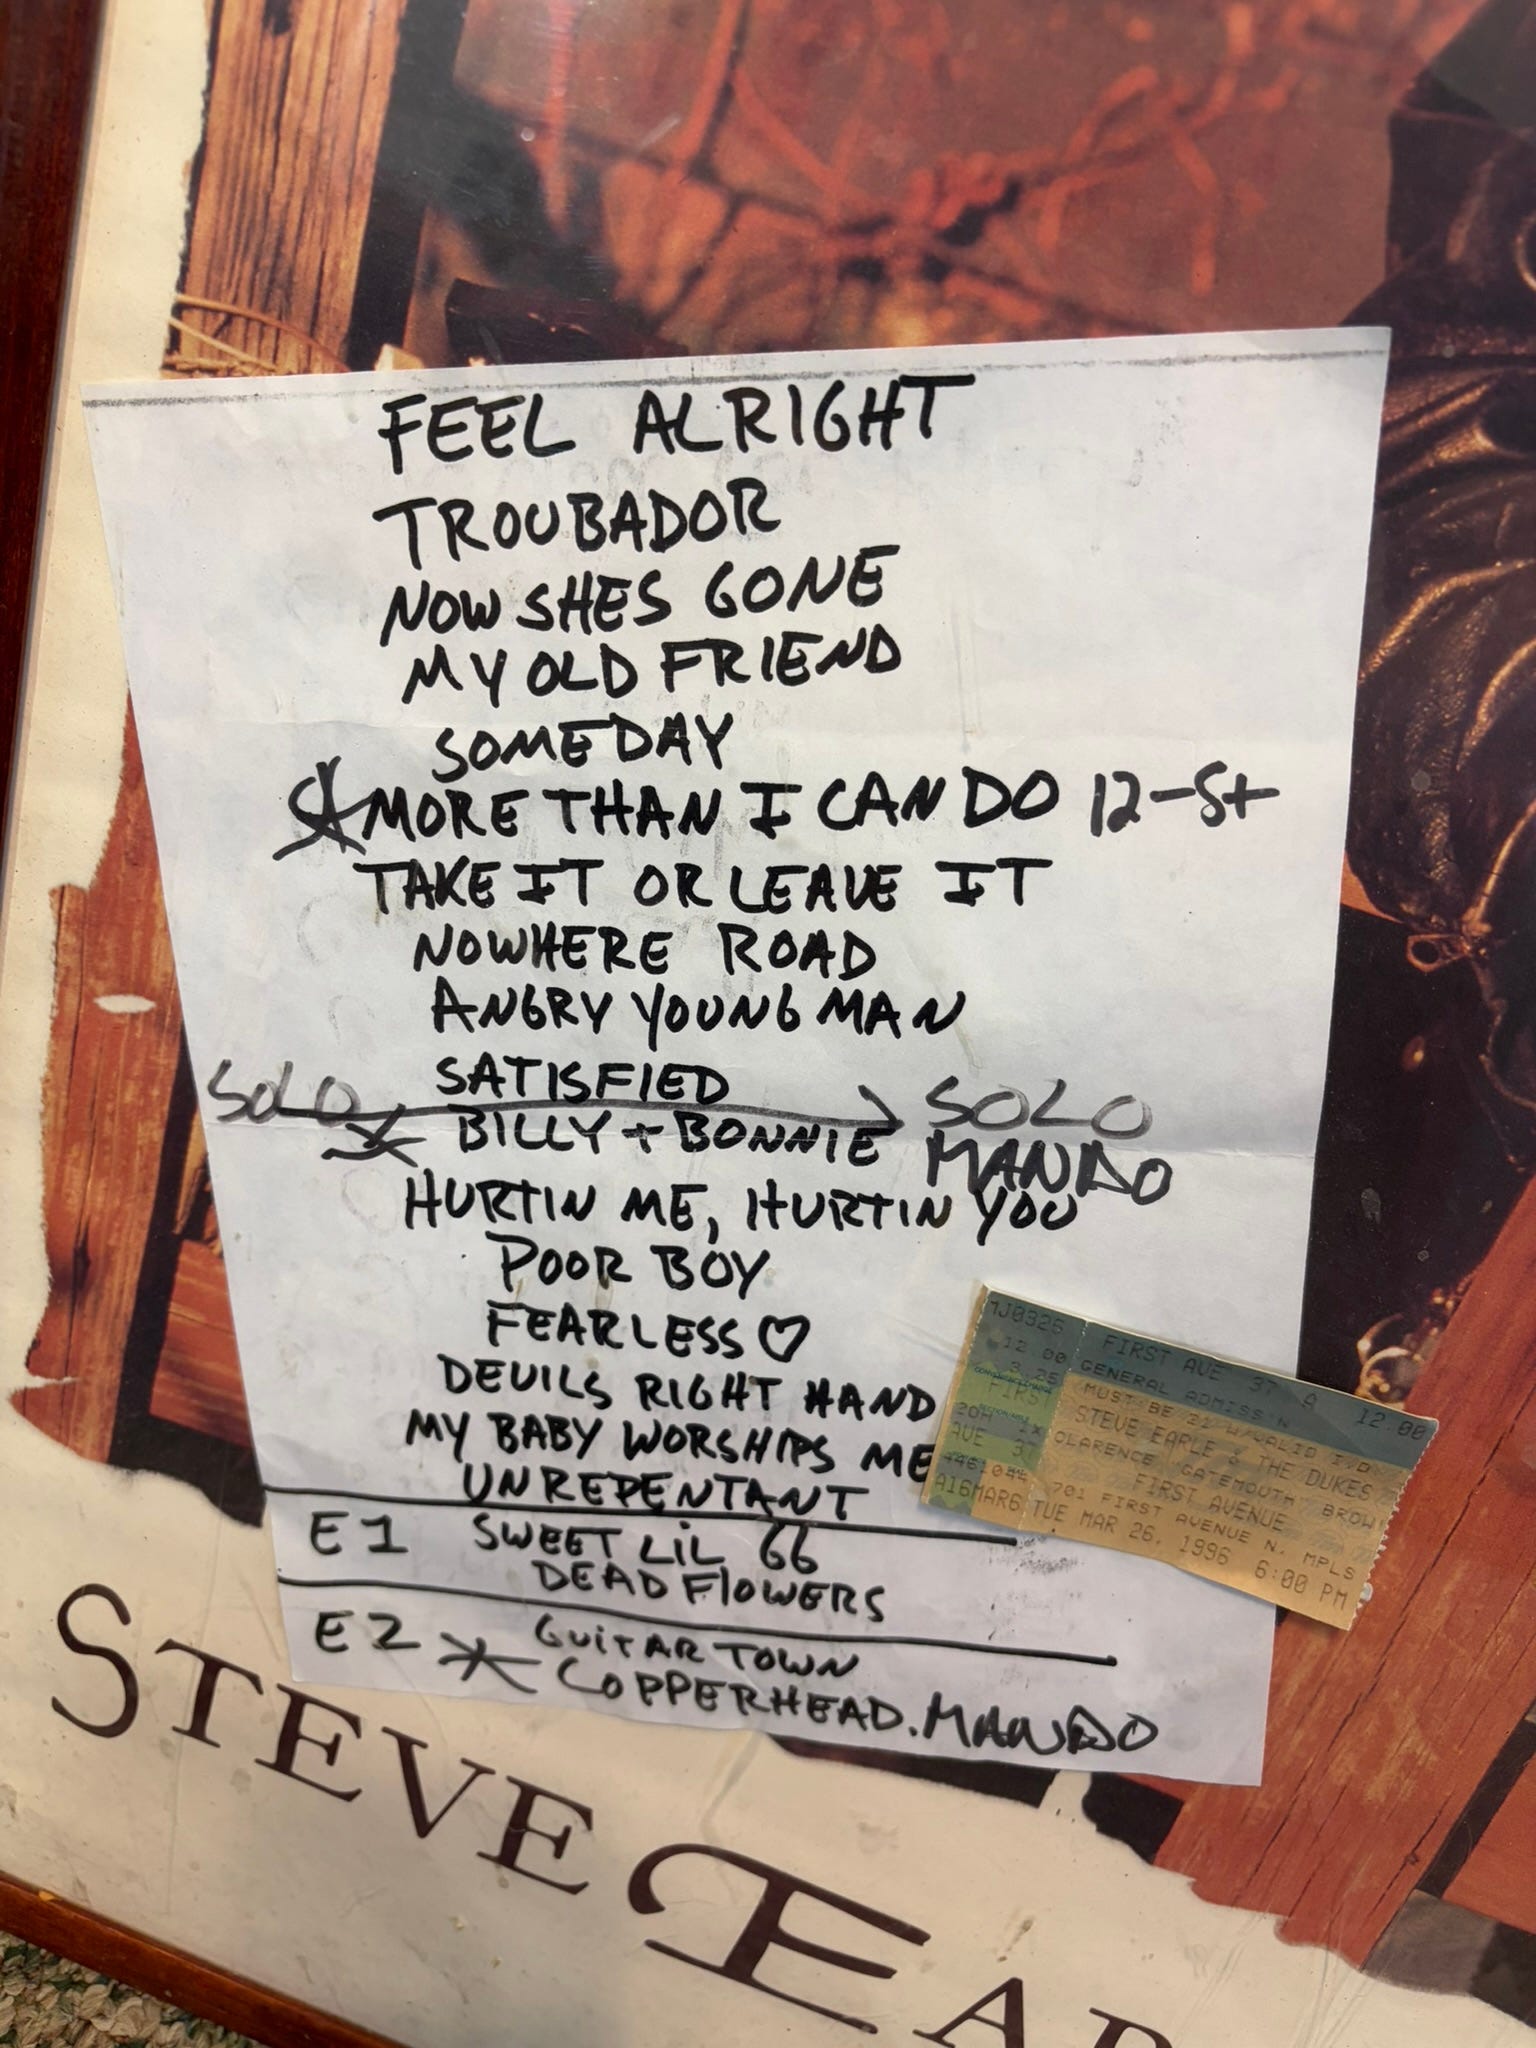 FEEL ALRIGHT
TROUBADOR
NOW SHES GONE
MY OLD FRIEND
SOMEDAY
MORE THAN I CAN DO 12-St
TAKE IT OR LEAVE IT
NOWHERE ROAD
ANGRY YOUNG MAN
SATISFIED
SOLO SOLO
BILLY + BONNIE MANDO
HURTIN ME, HURTIN YOU
POOR BOY
FEARLESS ♡
DEVILS RIGHT HAND
MY BABY WORSHIPS ME
UNREPENTANT
E1 SWEET LIL 66
DEAD FLOWERS
E2 GUITAR TOWN
COPPERHEAD. MANDO
MJ0326
12 00
3.25
FIRST
AVE 37
A16MAR6
FIRST AVE 37 A 12.00
GENERAL ADMISS'N
MUST BE 21 W/VALID I.D
STEVE EARLE & THE DUKES
CLARENCE "GATEMOUTH" BROWN
FIRST AVENUE
701 FIRST AVENUE N. MPLS
TUE MAR 26, 1996 6:00 PM
STEVE EAR